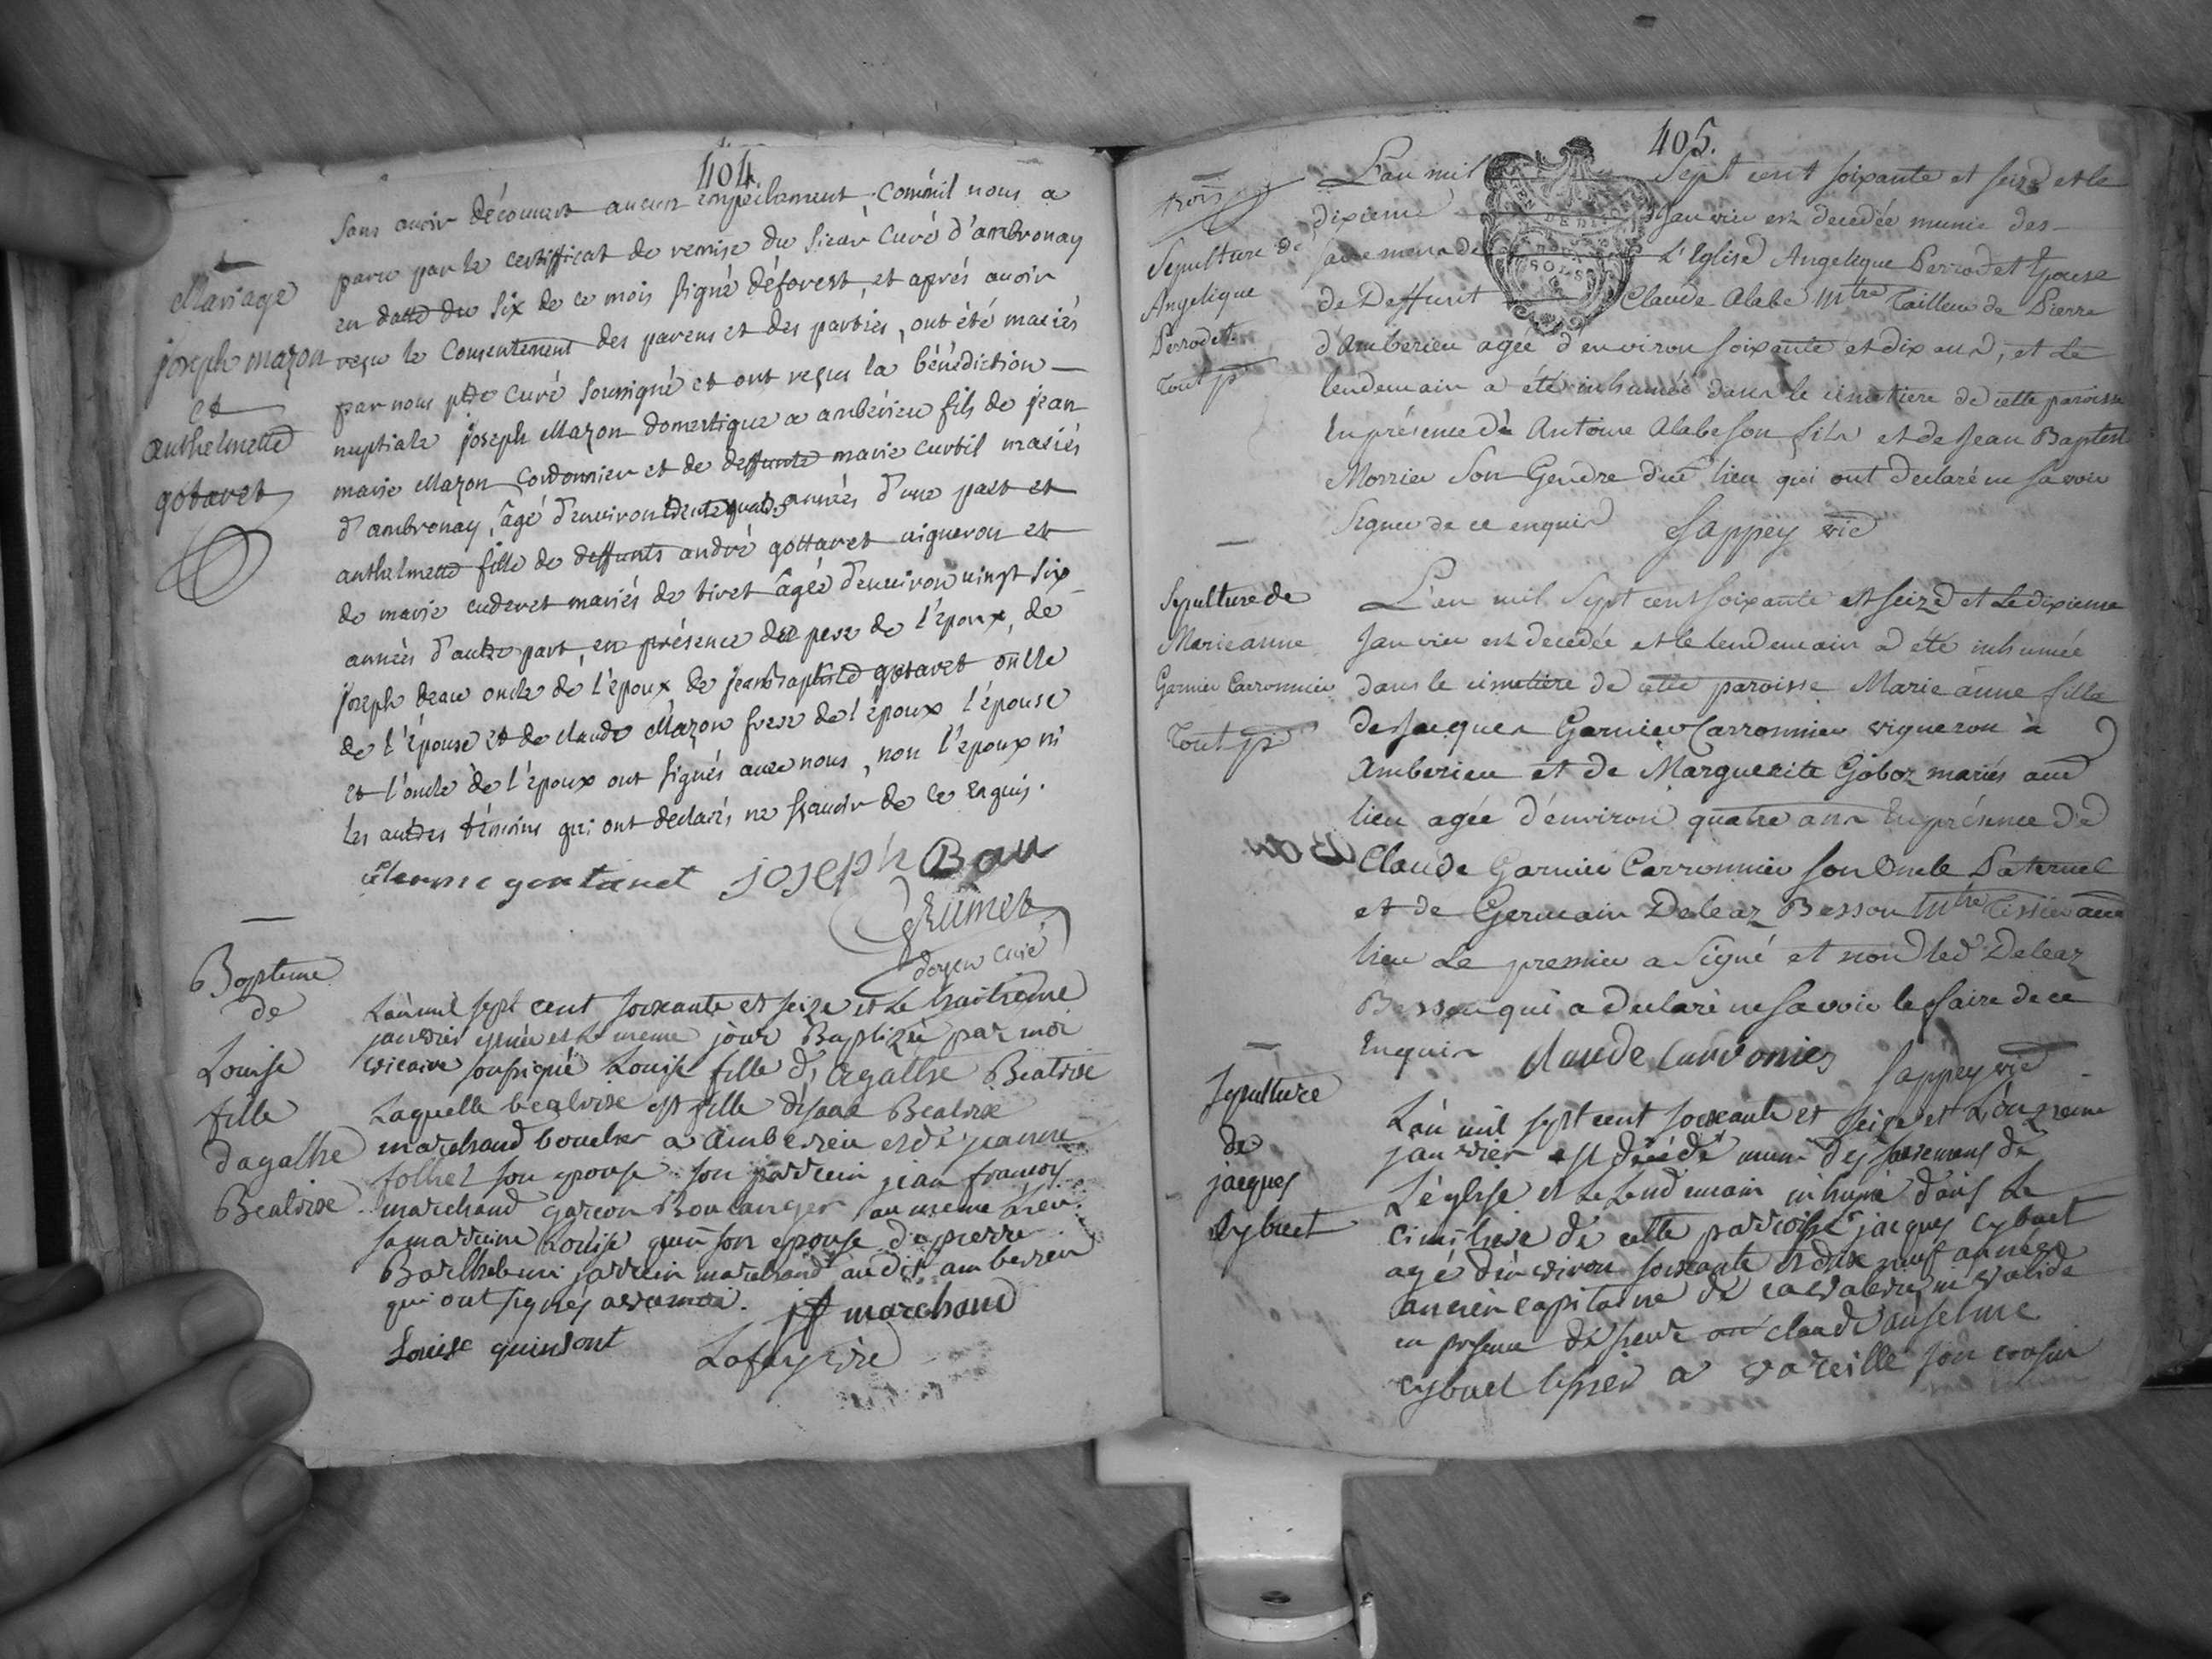 404.
Mariage
joseph mazon
et
anthelmette
gotavet
sans avoir découvert aucun empêchement comm'il nous a
paru par le certifficat de remise du sieur curé d'ambronay
en datte du six de ce mois signé déforest, et aprés avoir
reçu le consentement des parens et des parties, ont été mariés
par nous ptre curé soussigné et ont reçus la bénédiction
nuptiale joseph Mazon domestique a ambérieu fils de jean
marie Mazon cordonnier et de deffunte marie curtil mariés
d'ambronay, âgé d'environ années d'une part et
anthelmette fille de deffunts andré gottavet vigneron et
de marie cuderet mariés de tiret âgée d'environ vingt six
années d'autre part, en présence du pere de l'époux, de
joseph beau oncle de l'époux de jeanbaptiste gotavet oncle
de l'épouse et de claude Mazon frere de l'époux l'épouse
et l'oncle de l'époux ont signés avec nous, non l'epoux ni
les autres témoins qui ont déclarés ne sçavoir de ce enquis.
joseph Bau
Grumet
doyen curé
Bapteme
de
Louise
fille
dagathe
Beatrixe
L'an mil sept cent soixante et seize et le huitieme
janvier est née et le meme jour Baptizée par moi
vicaire soussigné Louise fille d'Agathe Beatrixe
Laquelle beatrixe est fille d'isaac Beatrixe
marchand boucher a Amberieu et de jeanne
folliet son epouse son parrein jean françois
marchand garçon Boulanger au meme Lieu
sa marreine Louise epouse de pierre
Barthelemi jarrein marchand au dit amberieu
qui ont signés avec moi. jf marchand
Louise quinsont
405.
trois
Sepulture de
Angelique
Perrodet
L'an mil Sept cent soixante et seize et le
dixieme Janvier est decedée munie des
sacremens de L'Eglise Angelique Perrodet Epouse
de Deffunt Claude Alabe Mtre Tailleur de Pierre
d'Amberieu agée d'environ soixante et dix ans, et le
lendemain a été inhumée dans le cimetiere de cette paroisse
En présence de Antoine Alabe son fils et de Jean Baptiste
Morrier son Gendre dud lieu qui ont declaré ne savoir
signer de ce enquis Sappey vic
Sepulture de
Marie anne
Garnier Carronnier
L'an mil Sept cent soixante et seize et Le dixieme
Janvier est decedée et le lendemain a été inhumée
dans le cimetiere de cette paroisse Marie anne fille
de Jacques Garnier Carronnier vigneron à
Amberieu et de Marguerite Goboz mariés aud
lieu agée d'environ quatre ans En présence de
Claude Garnier Carronnier son Oncle Paternel
et de Germain Deleaz Besson Mtre Tissier aud
lieu Le premier a Signé et non led Deleaz
Besson qui a declaré ne savoir le faire de ce
Enquis claude Carronier
Sappey vic
Sepulture
de
jacques
Cybuet
L'an mil sept cent soixante et seize et L'onzieme
janvier est décédé muni des sacremens de
L'église et Le Lendemain inhumé dans Le
cimetiere de cette parroisse jacques cybuet
agé d'environ soixante et dix neuf années
ancien capitaine de cavalerie invalide
en presence de sieur claude anselme
cybuet son cousin